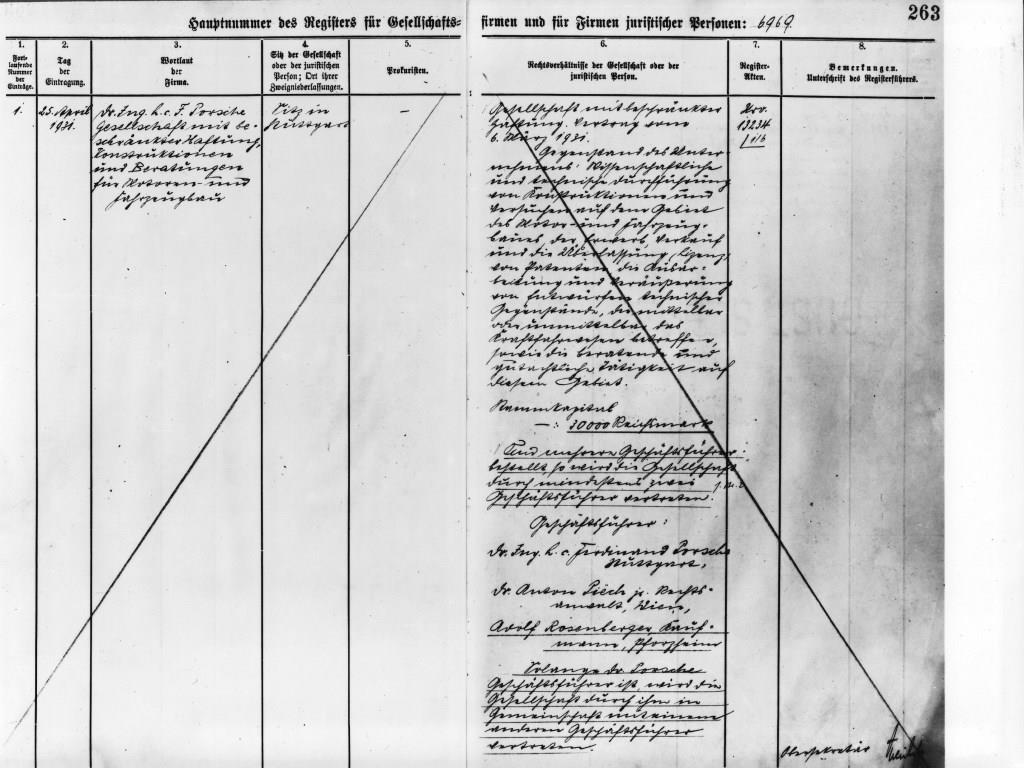 263
Hauptnummer des Registers für Gesellschafts= firmen und für Firmen juristischer Personen: 6969.
1.
Fort-
laufende
Nummer
der
Einträge.
2.
Tag
der
Eintragung.
3.
Wortlaut
der
Firma.
4.
Sitz der Gesellschaft
oder der juristischen
Person; Ort ihrer
Zweigniederlassungen.
5.
Prokuristen.
6.
Rechtsverhältnisse der Gesellschaft oder der
juristischen Person.
7.
Register-
Akten.
8.
Bemerkungen.
Unterschrift des Registerführers.
1.
25. April
1931.
Dr. Ing. h. c. F. Porsche
Gesellschaft mit be-
schränkter Haftung,
Konstruktionen
und Beratungen
für Motoren- und
Fahrzeugbau
Sitz in
Stuttgart
—
Gesellschaft mit beschränkter
Haftung. Vertrag vom
6. März 1931.
Gegenstand des Unter-
nehmens: Wissenschaftliche
und technische Durchführung
von Konstruktionen und
Versuchen auf dem Gebiet
des Motor- und Fahrzeug-
baues, der Erwerb, Verkauf
und die Überlassung
von Patenten, die Ausar-
beitung und Veräußerung
von Entwürfen technischer
Gegenstände, die mittelbar
oder unmittelbar das
Kraftfahrwesen betreffen,
sowie die beratende und
gutachtliche Tätigkeit auf
diesem Gebiet.
Stammkapital
—: 30000 Reichsmark
Sind mehrere Geschäftsführer
bestellt, so wird die Gesellschaft
durch mindestens zwei
Geschäftsführer vertreten.
Geschäftsführer:
Dr. Ing. h. c. Ferdinand Porsche
Stuttgart,
Dr. Anton Piëch jr. Rechts-
anwalt, Wien,
Adolf Rosenberger, Kauf-
mann, Pforzheim
Solange Dr. Porsche
Geschäftsführer ist, wird die
Gesellschaft durch ihn in
Gemeinschaft mit einem
anderen Geschäftsführer
vertreten.
13234
Obersekretär